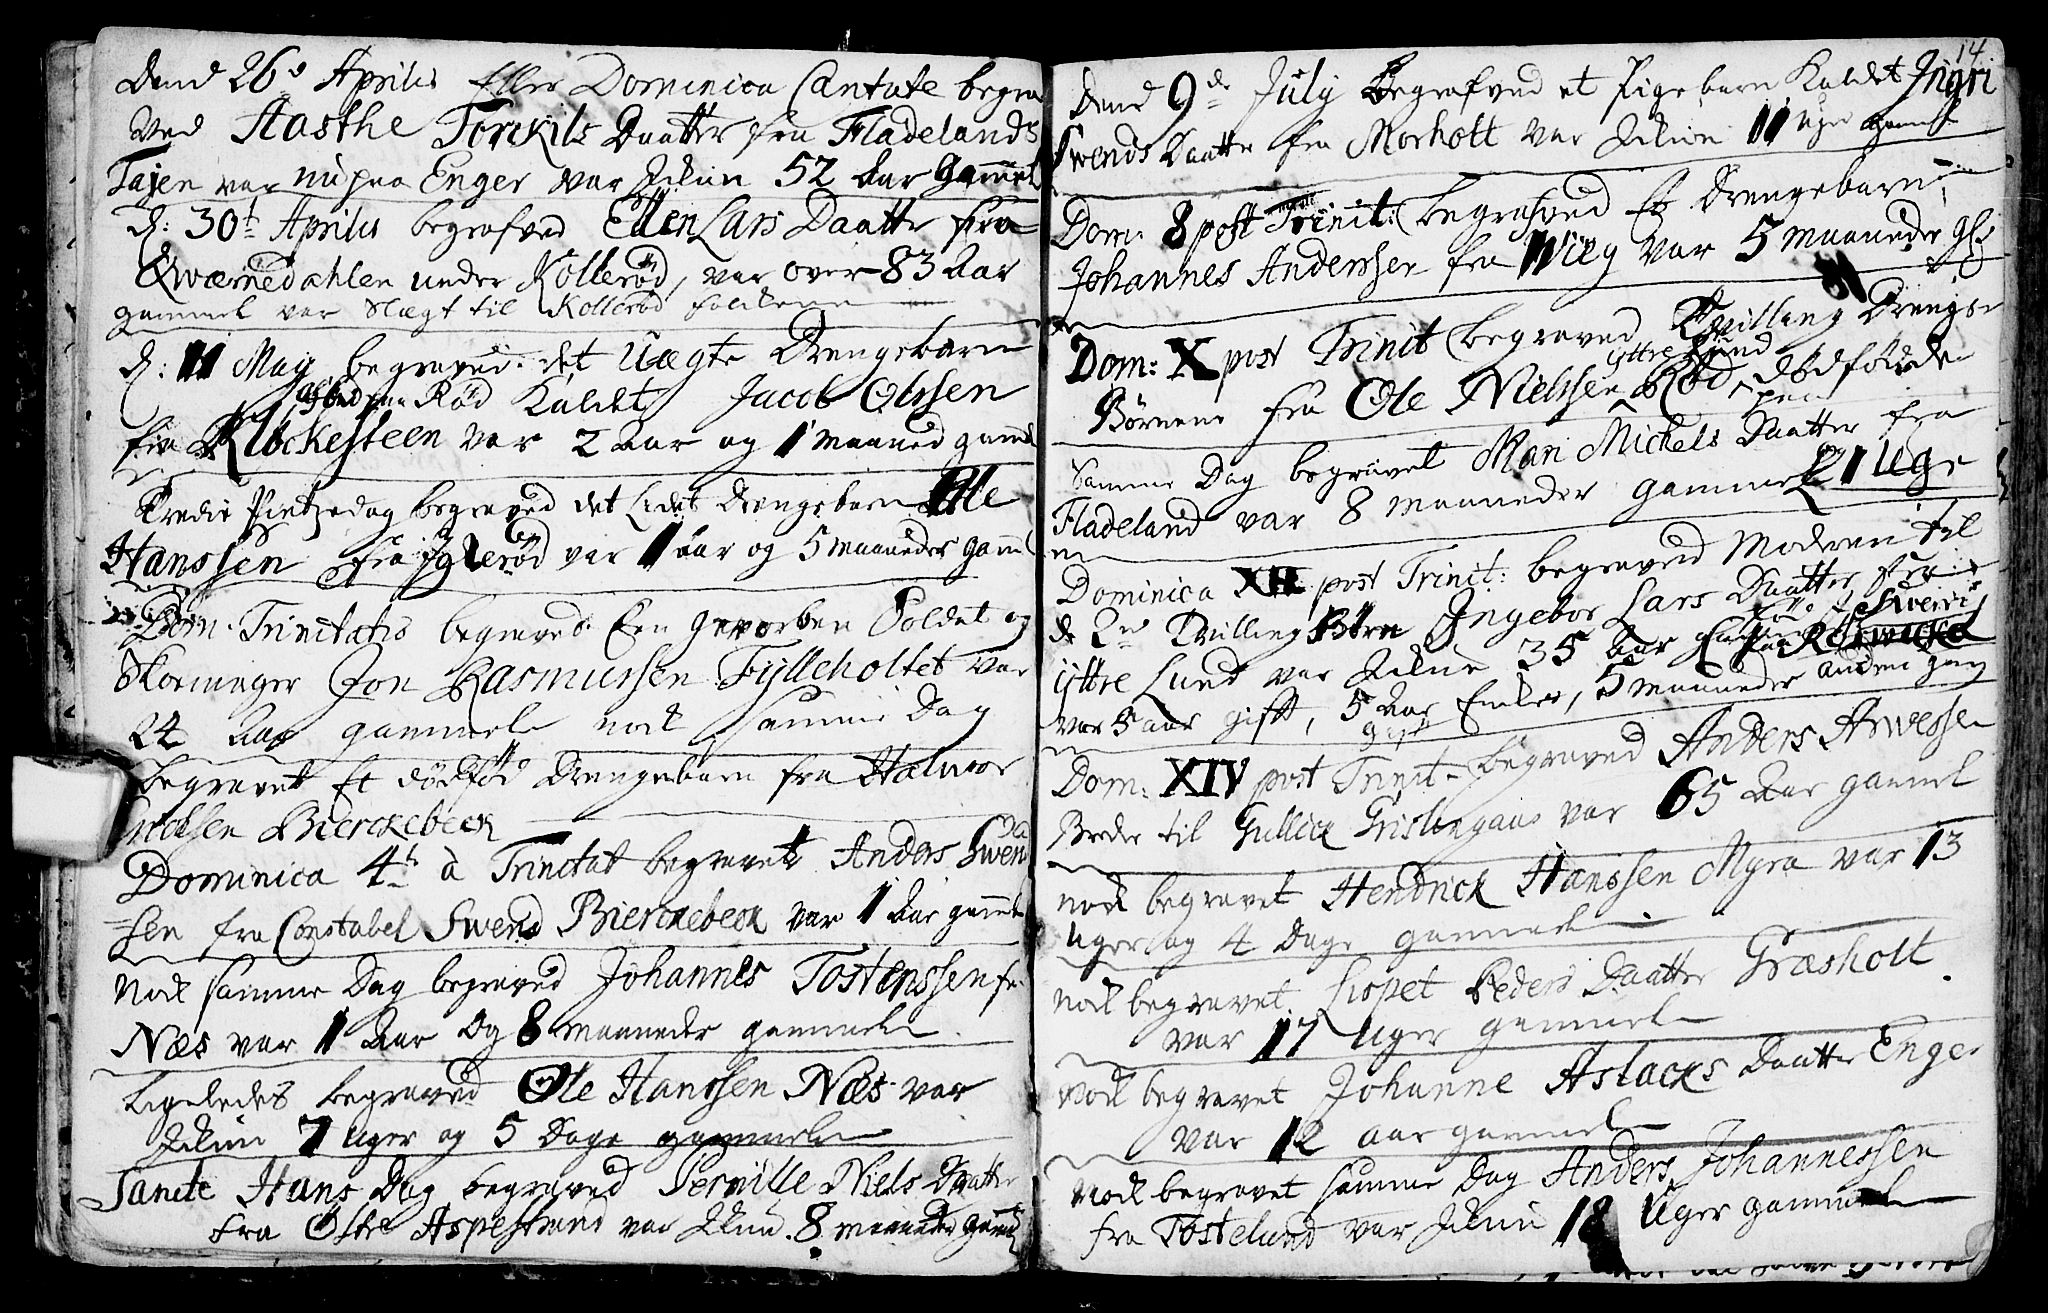 Dend 26de Aprilis Eller Dominica Cantate begra
ved Aasthe Torckils Daatter fra Fladelands
Tajen var nu paa Enger var ickun 52 aar gammel
d: 30t Aprilis begrafved Ellen Lars Daatter fra
Qwærnedahlen under Kollerød, var over 83 aar
gammel var Slægt til Kollerød folckene
d: 11 May begraved det Uægte Drengebarn
paa Rød Kaldet Jacob Olssen
fra Klockesteen var 2 aar og 1 maaned gamel
Tredie Pintzedag begraved det Lidet drengebarn Ole
Hanssen fra Iglerød var 1 aar og 5 maaneder gamel
Dom. Trinitatis begraved Een Gevorben Soldat og
Skomager Jon Rasmussen Fylleholtet var
24 aar gammel nock samme Dag
begravet Et dødfød Drengebarn fra Halwor
Bierckebeck
Dominica 4t à Trinitat begravet Anders Swend
sen fra Constabel Swend Bierckebeck var 1 aar gammel
Nock samme Dag begraved Johannes Tostenssen fr
Næs var 1 aar og 8 maaneder gammel
Ligeledes begraved Ole Hanssen Næs var
ickun 7 uger og 5 dage gammel
Sancte Hans Dag begraved Pernille Niels Daatter
fra Østre Aspestrand var ickun 8 maaneder gamel
14
Dend 9de July Begrafved et Pigebarn Kaldet Ingri
Swends Daatter fra Morholt var ickun 11 uger gamel
Dom: 8 post Trinit: begrafved Et Drengebarn
Johannes Anderssen fra Wiig var 5 maaneder gl:
Dom: X post Trinit begraved Tvilling Drenge
yttre Lund
Børnene fra Ole Nielssen Rød dødfødde
Samme Dag begravet Mari Michels Daatter fra
Fladeland var 8 maaneder gammel og 1 Uge
Dominica XII post Trinit: begraved Moderen til
de 2de Tvilling Børn Ingebor Lars Daatter fra
yttre Lund var ickun 35 aar
var 5 aar gift, 5 aar Enke, 5 maaneder anden gang
gift
Dom: XIV post Trinit begraved Anders Arwessen
Broder til Gullick Grislingaas var 65 aar gammel
nock begravet Hendrick Hanssen Myra var 13
uger og 4 dage gammel
nock begravet Lispet Peders Daatter Græsholt
var 17 uger gammel
Nock begravet Johanne Aslacks Daatter Enger
var 12 aar gammel
Nock begravet samme dag Anders Johannessen
fra Tostelund var ickun 18 Uger gammel